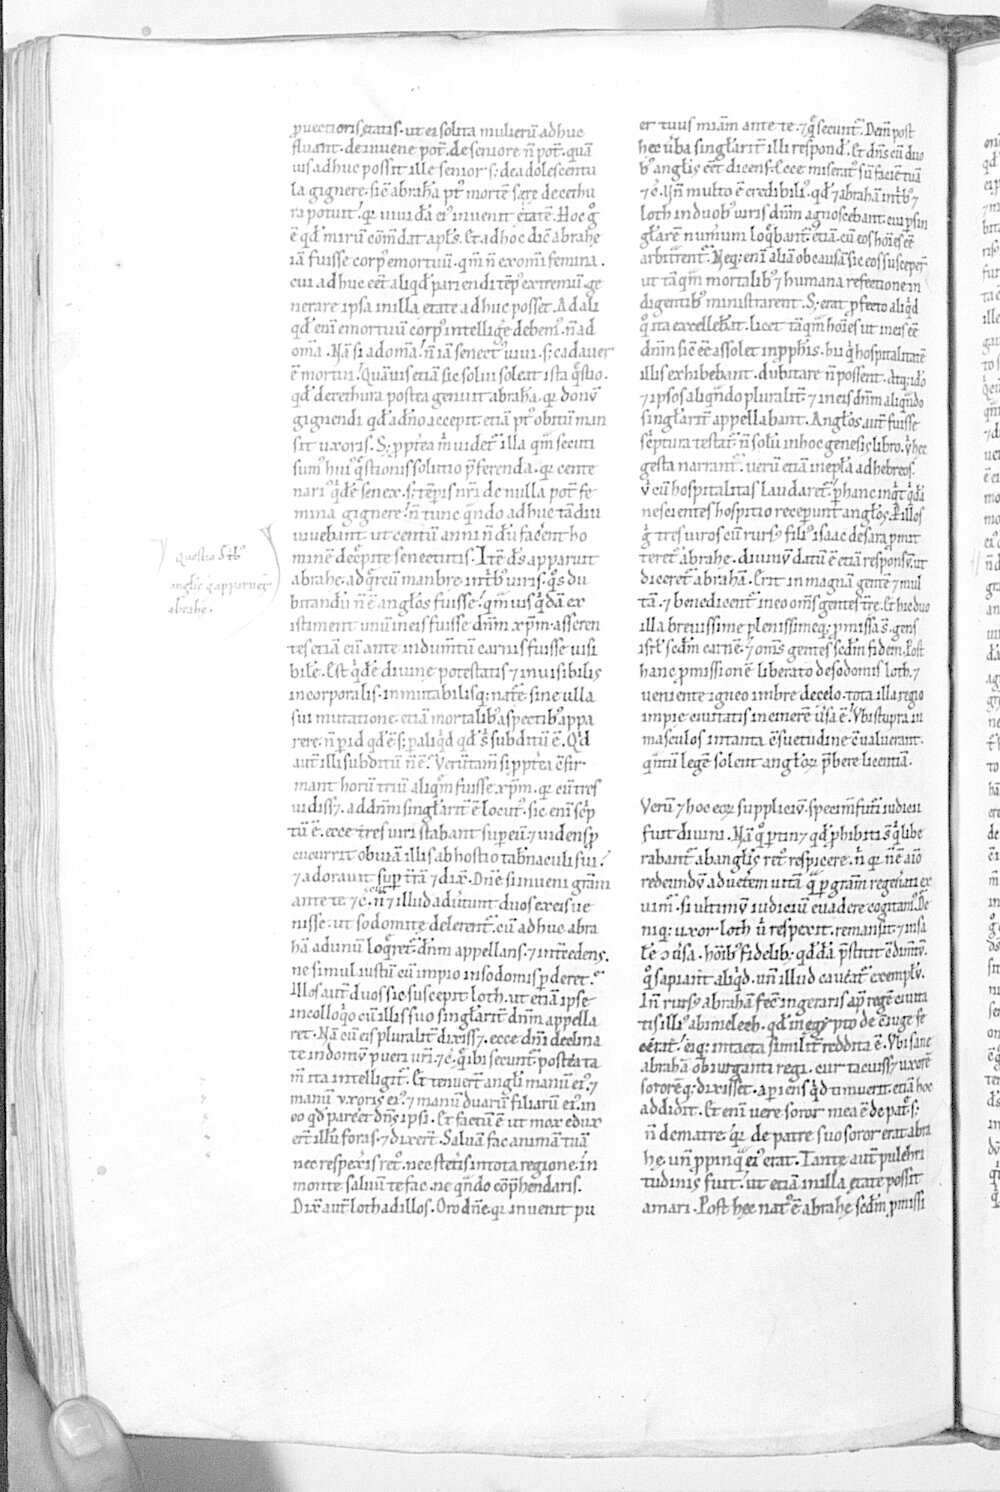 ꝓuectioris etatis. ut ei solita mulierū adhuc
fluant. de iuuene pot̄. de seniore n̄ pot̄. quā
uis adhuc possit ille senior s; de adolescentu
la gignere. sic̄ abrahā pt̓ mortē sare de cethu
ra potuit. qr uiuidā ei᷒ inuenit etatē. Hoc g̊
ē qd̓ mirū cōm̄dat apl̄s. Et ad hoc dic̄ abrahe
iā fuisse corp᷒ emortuū. qm̄ n̄ ex omī femina.
cui adhuc eēt aliqd̓ pariendi tēp᷒ extremū. ge
nerare ipsa in illa etate adhuc posset. Ad ali
qd̓ enī emortuū corp᷒ intelligē debem᷒. n̄ ad
omīa. Nā si ad omīa. n̄ iā senect᷒ uiui. s; cadauer
ē mortui. Quāuis etiā sic solui soleat ista q̄stio.
qd̓ de cethura postea genuit abrahā. qr donū
gignendi qd̓ a dn̄o accepit. etiā pt̓ obitū man
sit uxoris. S; ꝓpt̄ea m̄ uidet̄ illa qm̄ secuti
sum᷒ hui᷒ q̄stionis solutio p̄ferenda. qr cente
nari᷒ q̓dē senex. s; tēp̄is nr̄i de nulla pot̄ fe
mina gignere. n̄ tunc qn̄do adhuc tādiu
uiuebant. ut centū anni n̄dū facerent ho
minē decrepite senectutis. Itē ds̄ apparuit
abrahe. ad q̄rcū manbre in trib᷒ uiris. q̄s du
bitandū n̄ ē angl̓os fuisse. qm̄uis q̓dā ex
istiment unū in eis fuisse dn̄m xp̄m. asseren
tes etiā eū ante indum̄tū carnis fuisse uisi
bilē. Est q̓dē diuine potestatis ⁊ inuisibilis
incorporalis. inmutabilisq; nat̄e. sine ulla
sui mutatione. etiā mortalib᷒ aspectib᷒ appa
rere. n̄ ꝑ id qd̓ ē. s; ꝑ aliqd̓ qd̓ s̄ subditū ē. Qd̓
aut̄ illi subditū n̄ ē. Verūtam̄ si ꝓpt̄ea c̄fir
mant horū triū aliquē fuisse xp̄m. qr cū tres
uidiss;. ad dn̄m singl̓arit̄ ē locut᷒. sic enī sc̄p
tū ē. ecce tres uiri stabant sup eū. ⁊ uidens ꝑ
cucurrit obuiā illis ab hostio tab̄naculi sui.
⁊ adorauit sup t̄rā ⁊ dix̄. Dn̄e si inueni gr̄am
ante te ⁊c̄. n̄ ⁊ illud aduertunt duos ex eis ue
nisse. ut sodomite delerent̄. cū adhuc abra
hā ad unū loq̄ret̄. dn̄m appellans. ⁊ int̄cedens.
ne simul iustū cū impio in sodomis ꝑderet.
Illos aut̄ duos sic suscepit loth. ut etiā ipse
in colloq̓o cū illis suo singl̓arit̄ dn̄m appella
ret. Nā cū eis pluralit̄ dixiss;. ecce dn̄i declina
te in domū pueri uri. ⁊c̄. q̄ ibi secunt̄. postea ta
m̄ ita intelligit̄. Et tenuert̄ angl̓i manū ei᷒. ⁊
manū uxoris ei᷒. ⁊ manū duarū filiarū ei᷒. in
eo qd̓ parcēt dn̄s ipsi. Et factū ē ut mox edux
ert̄ illū foras. ⁊ dixert̄. Saluā fac animā tuā
nec respexis ret᷒. nec stetis in tota regione. in
monte saluū te fac. ne qn̄do cōp̄hendaris.
Dix̄ aut̄ loth ad illos. Oro dn̄e. qr inuenit pu
er tuus mīam ante te. ⁊ q̄ secunt̄. Dein̄ post
hec ūba singl̓arit̄ illi respond̓. Et dn̄s cū duo
b᷒ angl̓is eēt dicens. Ecce miserat᷒ sū faciē tuā
⁊c̄. Vn̄ multo ē credibili᷒. qd̓ ⁊ abrahā in trib᷒ ⁊
loth in duob᷒ uiris dn̄m agnoscebant. cui ꝑ sin
gl̓arē num̄um loq̄bant̄. etiā cū eos hoīes eē
arbitrent̄. Neq; enī aliā ob causā sic eos susceper̄
ut tāqm̄ mortalib᷒ ⁊ humana refectione in
digentib᷒ ministrarent. S; erat ꝓfecto aliqd̓
q̊ ita excellebat. licet tāqm̄ hoīes ut in eis eē
dn̄m sic eē assolet in ꝓph̄is. hii q̓ hospitalitatē
illis exhibebant. dubitare n̄ possent. Atq; ido
⁊ ipsos aliqn̄do pluralit̄. ⁊ in eis dn̄m aliqn̄do
singl̓arit̄ appellabant. Angl̓os aut̄ fuisse
sc̄ptura testat̄. n̄ solū in hoc genesis libro. ū hec
gesta narrant̄. uerū etiā in epl̓a ad hebreos.
ū cū hospitalitas laudaret̄. ꝑ hanc inq̓t q̓dā
nescientes hospitio receperunt angl̓os. P̱ illos
g̊ tres uiros cū rurs᷒ fili᷒ isaac de sara ꝓmit
teret̄ abrahe. diuinū datū ē etiā responsū. ut
diceret̄ abrahā. Erit in magnā gentē ⁊ mul
tā. ⁊ benedicent̄ in eo om̄s gentes t̄re. Et hic duo
illa breuissime plenissimeq; ꝓmissa s̄. gens
isrl̓ scd̄m carnē. ⁊ om̄s gentes scd̄m fidem. Post
hanc ꝓmissionē liberato de sodomis loth. ⁊
ueniente igneo imbre de celo. tota illa regio
impie ciuitatis in cinerē ūsa ē. Vbi stupra in
masculos in tanta c̄suetudine c̄ualuerant.
qn̄tū leges solent angl̓oꝝ p̄bere licentiā.
Verū ⁊ hoc eoꝝ suppliciū. specim̄ futi iudicii
fuit diuini. Nā q̊ ꝑtin; ⁊ qd̓ ꝓhibiti s̄ q̓ libe
rabant̄ ab angl̓is ret᷒ respicere. n̄ qr n̄ ē aīo
redeundū ad uetem uitā q̄ ꝑ gr̄am regen̄ati ex
uim᷒. si ultimū iudiciū euadere cogitam᷒. De
niq; uxor loth ū respexit. remansit. ⁊ in sa
lē ɔūsa. hoīb᷒ fidelib; qd̓dā p̄stitit c̄dim̄tū.
q̊ sapiant aliqd̓. un̄ illud caueat̄ exemplū.
In̄ rurs᷒ abrahā fec̄ in geraris ap̄ regē ciuita
tis illi᷒ abimelech. qd̓ in egypto de c̄iuge fe
cerat. eiq; intacta similit̄ reddita ē. Vbi sane
abrahā obiurganti regi. cur tacuiss; uxorē
sororēq; dixisset. aperiens qd̓ timuerit. etiā hoc
addidit. Et enī uere soror mea ē de pat̄. s;
n̄ de matre. qr de patre suo soror erat abra
he. un̄ ꝓpinq̄ ei᷒ erat. Tante aut̄ pulchri
tudinis fuit. ut etiā in illa etate possit
amari. Post hec nat᷒ ē abrahe scd̄m ꝓmissi
questio de trib᷒
anglis q̄ apparuer̄
abrahe.